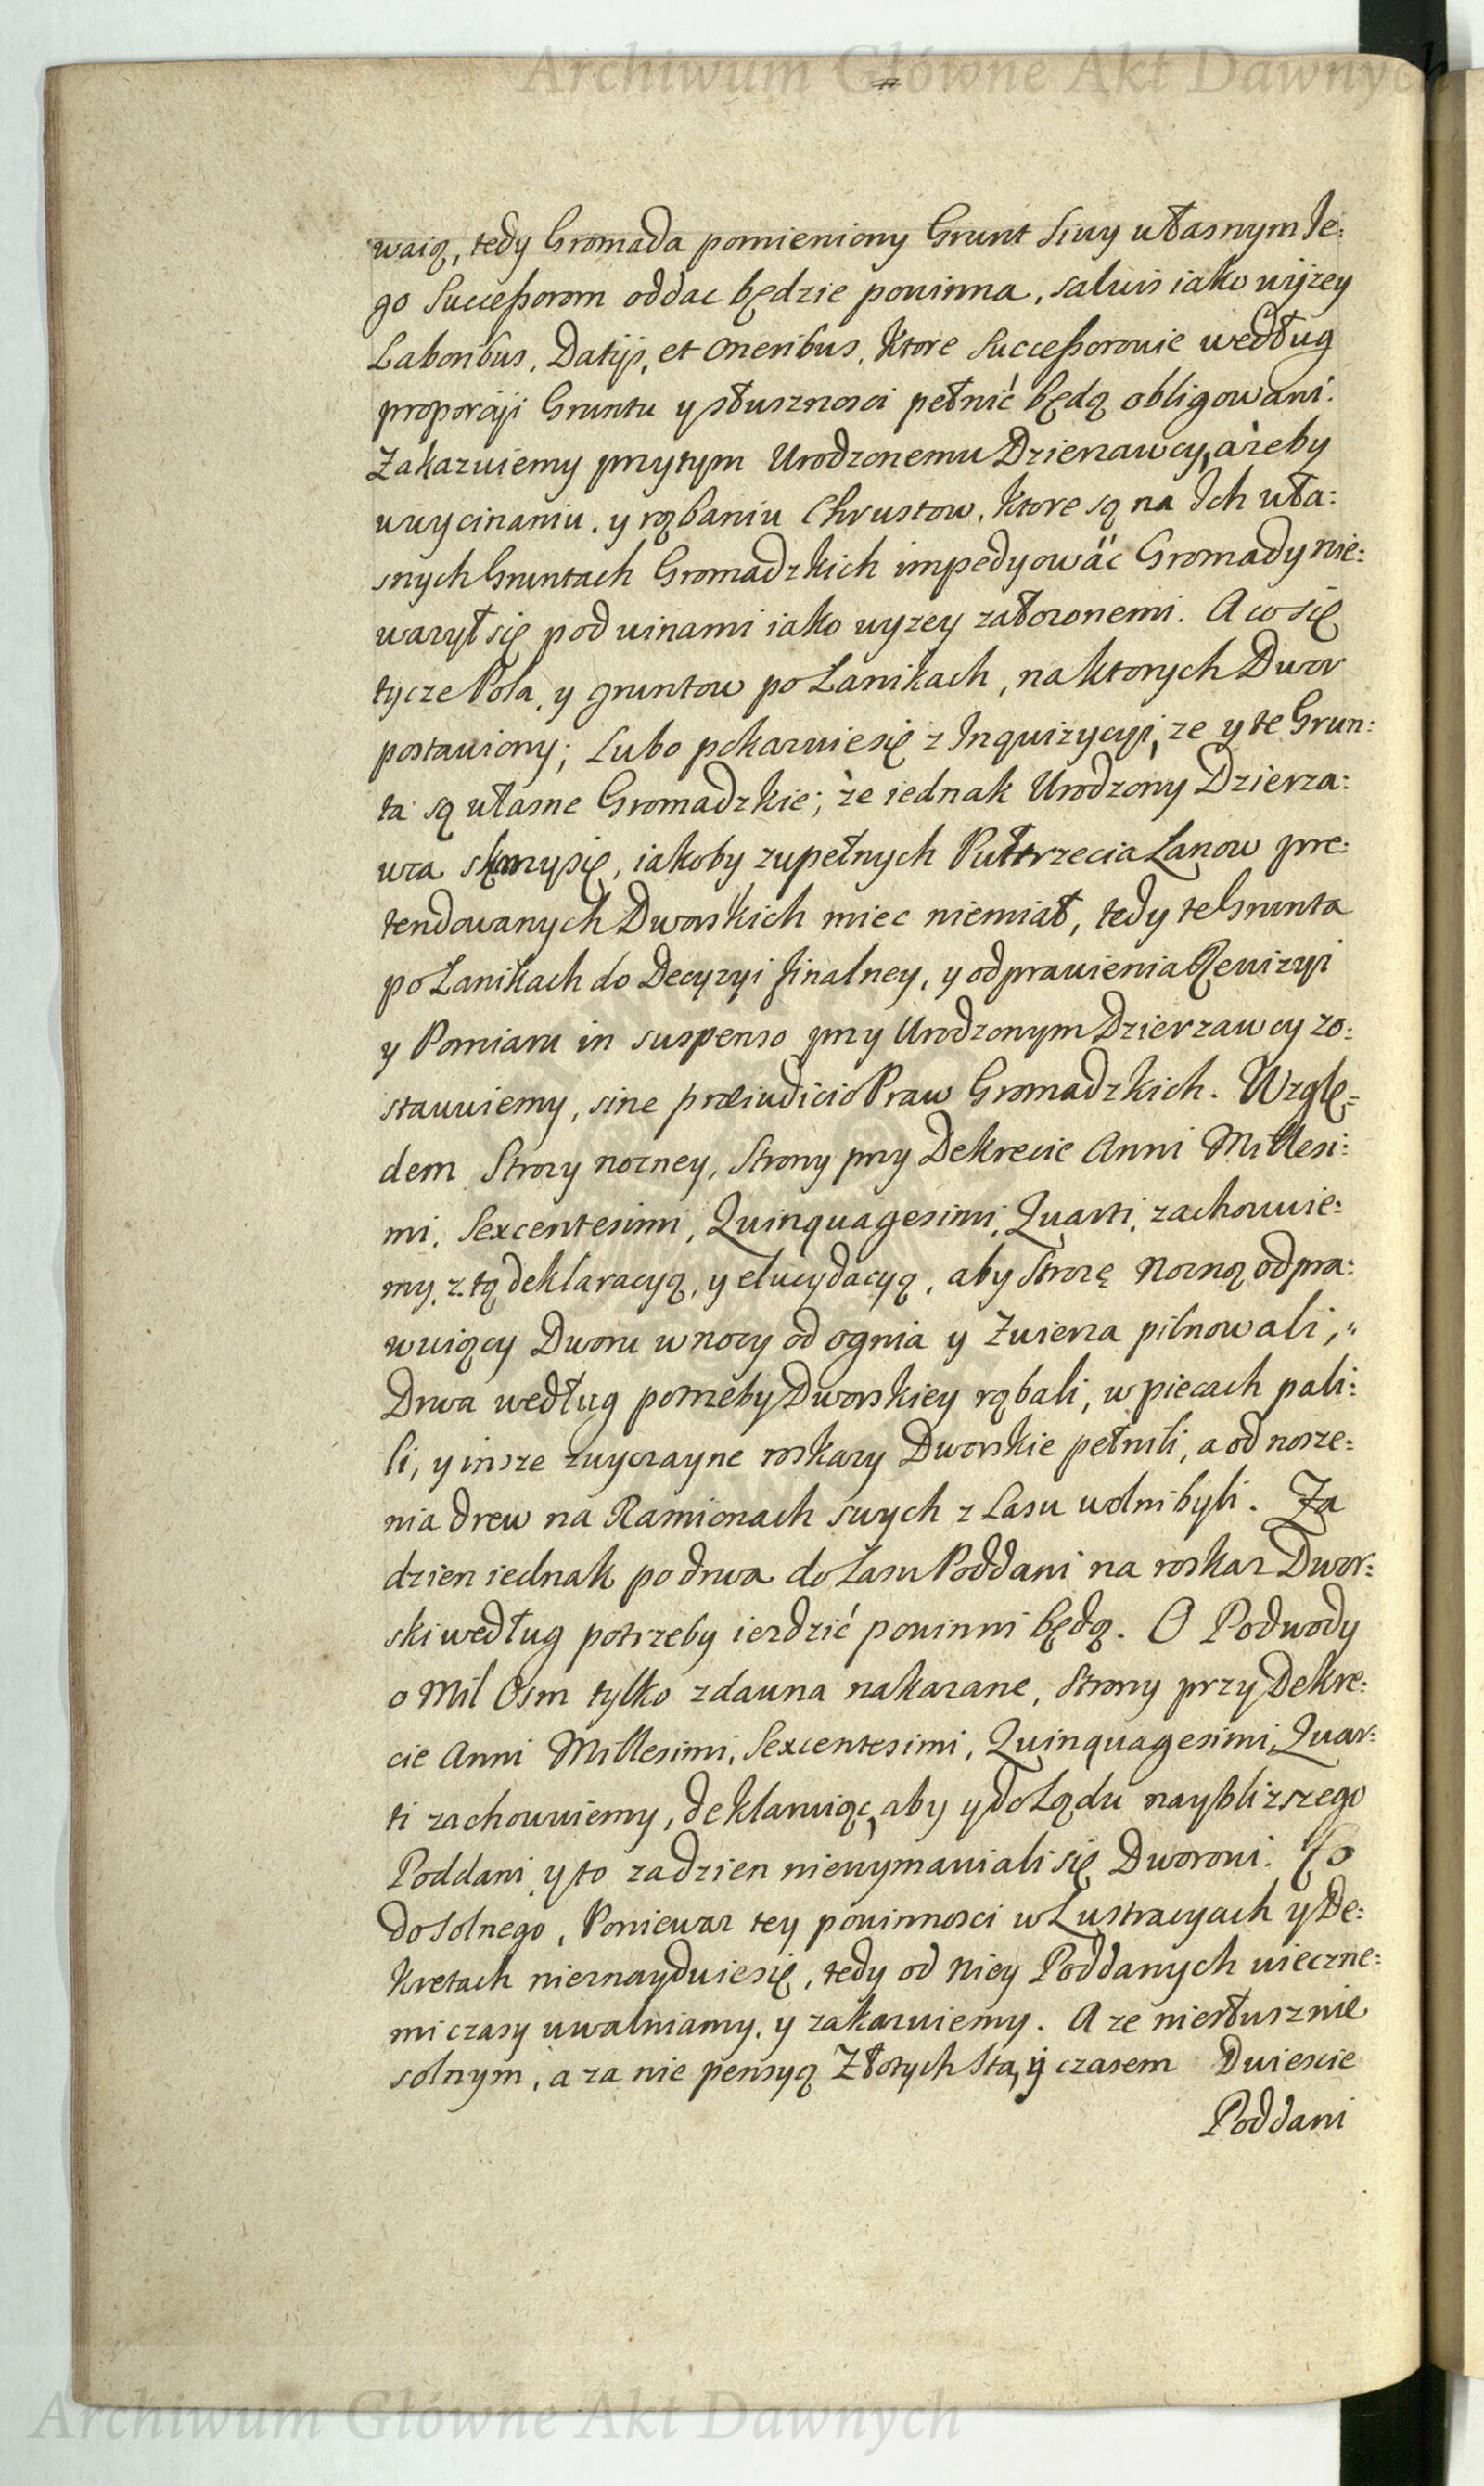 Archiwum Główne Akt Dawnych
waią, tedy Gromada pomieniony Grunt Siwy własnym Je:
go Successorom oddac będzie powinna, salvis iako wyzey
Laboribus, Datijs, et Oneribus, ktore Successorowie według
proporcÿi Gruntu y słusznosci pełnić będą obligowani.
Zakazuiemy przytym Urodzonemu Dzierzawcy, ażeby
wwycinaniu, y rąbaniu Chrustow, ktore są na Ich wła:
snych Gruntach Gromadzkich impedyowäc Gromady nie:
wazył się pod winami iako wyzey załozonemi. A co się
tycze Pola, y gruntow po Łanikach, na ktorych Dwor
postawiony; Lubo pokazuie się z Inquizycyi, ze y te Grun:
ta są własne Gromadzkie; że iednak Urodzony Dzierza:
wca skarzy się, iakoby zupełnych Pułtrzecia Łanow pre:
tendowanych Dworskich miec niemiał, tedy te Grunta
po Łanikach do Decyzyi finalney, y odprawienia Rewizyi
y Pomiaru in suspenso przy Urodzonym Dzierzawcy zo:
stawuiemy, sine præiudicio Praw Gromadzkich. Wzglę=
dem Strozy nocney, Strony przy Dekrecie Anni Millesi:
mi, Sexcentesimi, Quinquagesimi, Quarti, zachowuie:
my, z tą deklaracyą, y elucydacyą, aby Strozę Nocną odpra:
wuiący Dworu w nocy od ognia y Zwierza pilnowali,
Drwa według potrzeby Dworskiey rąbali, w piecach pali:
li, y insze zwyczayne roskazy Dworskie pełnili, a od nosze:
nia drew na Ramionach swych z Lasu wolni byli. Za
dzien iednak po drwa do Lasu Poddani na roskaz Dwor:
ski według potrzeby iezdzić powinni będą. O Podwody
o Mil Osm tylko zdawna nakazane, Strony przy Dekre:
cie Anni Millesimi, Sexcentesimi, Quinquagesimi, Quar:
ti zachowuiemy, deklaruiąc, aby y do Lądu naybliższego
Poddani y to zadzien niewymawiali się Dworowi. Co
do solnego, Poniewaz tey powinnosci w Lustracyach y De:
kretach nieznayduie się, tedy od Niey Poddanych wieczne:
mi czasy uwalniamy, y zakazuiemy. A ze niesłusznie
solnym, a za nie pensyą Złotych Sta, ÿ czasem Dwiescie
Poddani
Archiwum Główne Akt Dawnych